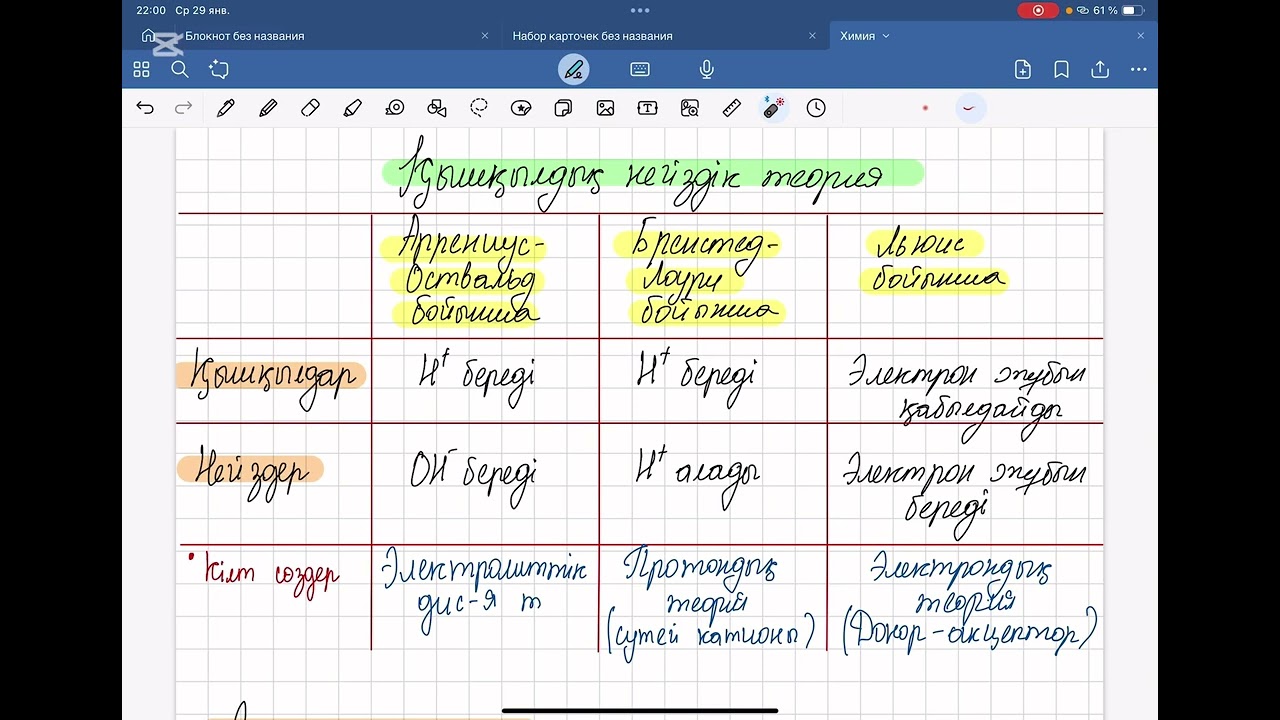 22:00 Ср 29 янв.
61 %
Блокнот без названия
Набор карточек без названия
Химия
Қышқылдық негіздік теория
Аррениус-
Оствальд
бойынша
Бренстед-
Лоури
бойынша
Льюис
бойынша
Қышқылдар
H⁺ береді
H⁺ береді
Электрон жұбын
қабылдайды
Негіздер
OH⁻ береді
H⁺ алады
Электрон жұбын
береді
• Кілт сөздер
Электролиттік
дис-я т
Протондық
теория
(сутей катионы)
Электрондық
теория
(Донор-акцептор)